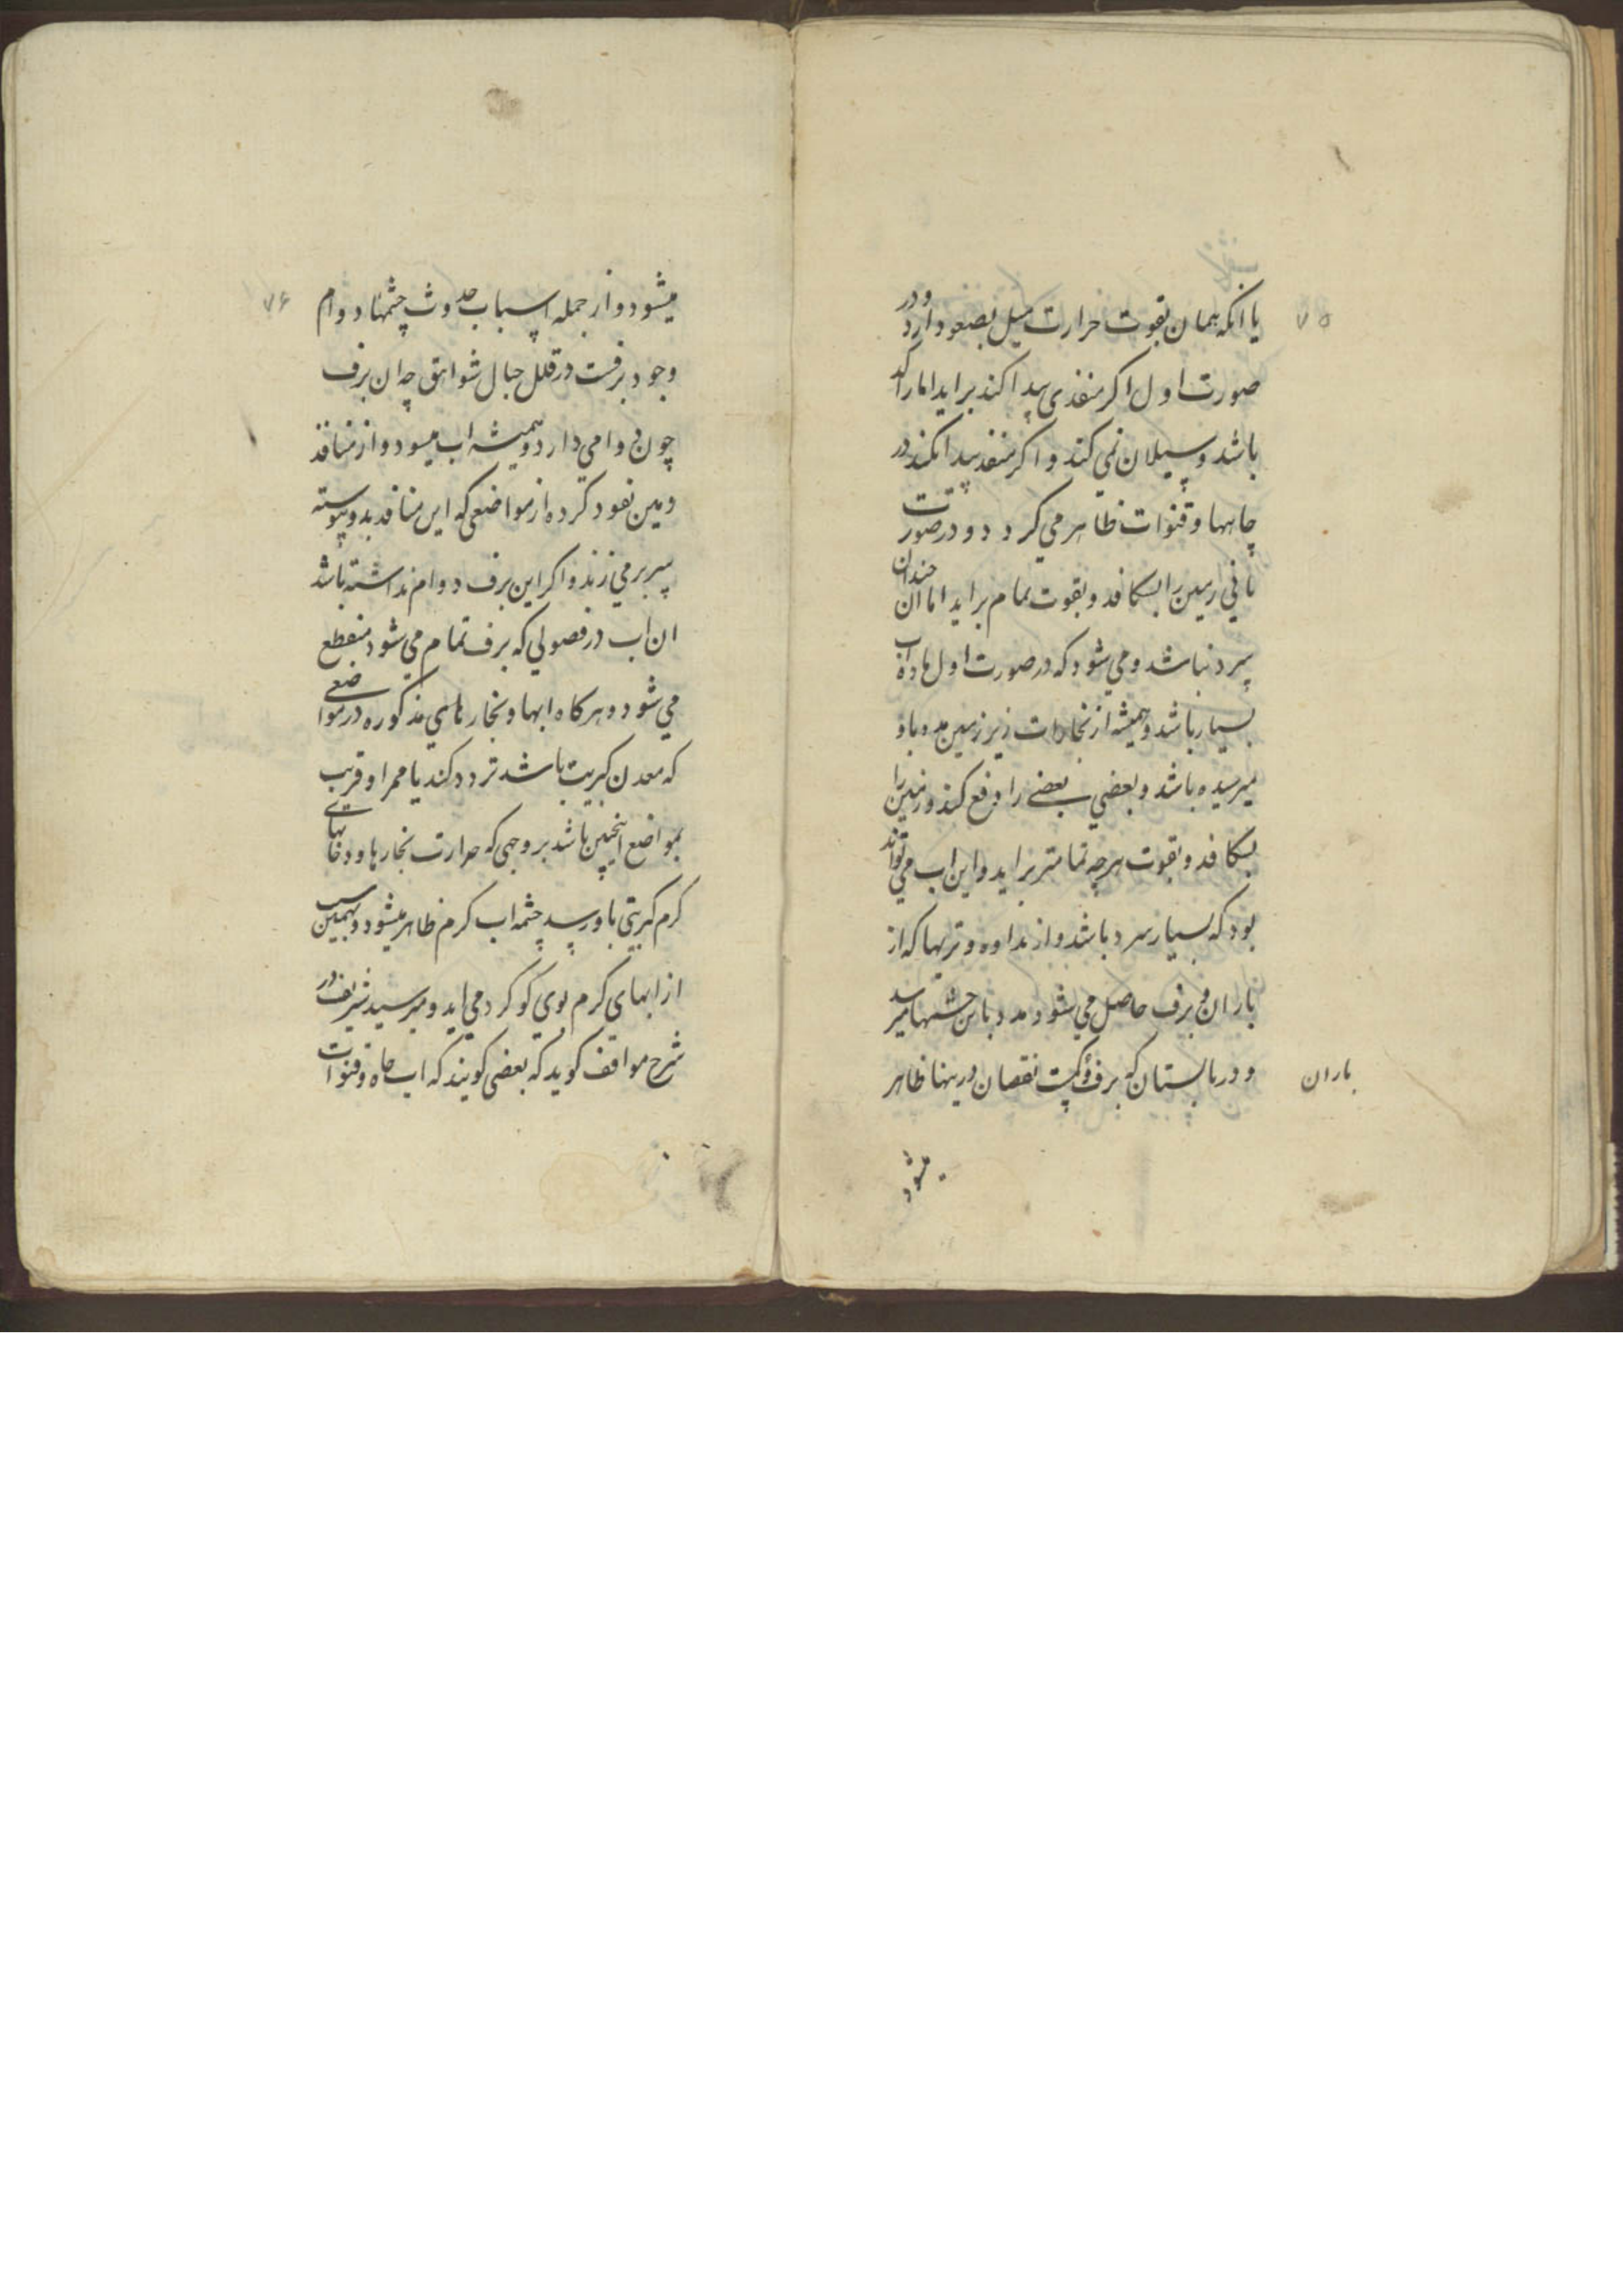 ۷۵
یا انکه همان بقوت حرارت میل بصعود دارد و در
صورت اول اکر منفذی پیدا کند براید اما راکد
باشد و سیلان نمی کند و اکر منفذ پیدا نکند در
چاهها و قنوات ظاهر می کردد و در صورت
ثانی زمین را بشکافد و بقوت تمام براید اما ان چندان
سرد نباشد و می شود که در صورت اول ماده اب
بسیار باشد و همیشه از بخارات زیر زمین مدد باو
میرسیده باشد و بعضی بعضی را دفع کند و زمین را
بشکافد و بقوت هرچه تمامتر براید و این اب می تواند
بود که بسیار سرد باشد و از نداوه و تریها که از
باران و برف حاصل می شود مدد باین چشمها میرسد
و در تابستان که برف کمست نقصان درینها ظاهر
باران
میشود
۷۶
میشود و از جمله اسباب حدوث چشمها دوام
وجود برفست در قلل جبال شواهق چه ان برف
چون دوامی دارد و همیشه اب میشود و از منافذ
زمین نفوذ کرده از مواضعی که این منافذ بدو پیوسته
سر بر می زند و اکر این برف دوام نداشته باشد
ان اب در فصولی که برف تمام می شود منقطع
می شود و هرکاه ابها و بخارهای مذکوره در مواضعی
که معدن کبریت باشد تردد کند یا ممر او قریب
بمواضع اینچنین باشد بر وجهی که حرارت بخارها و دخانهای
کرم کبریتی باو رسد چشمه اب کرم ظاهر میشود و بهمین سبب
از ابهای کرم بوی کوکرد می اید و میر سید شریف در
شرح مواقف کوید که بعضی کویند که اب چاه و قنوات